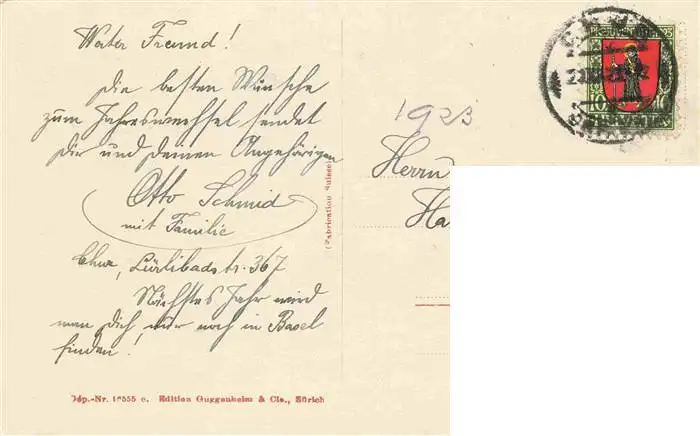 Werter Freund!
Die besten Wünsche
zum Jahreswechsel sendet
Dir und deinen Angehörigen
Otto Schmid
mit Familie
Chur, Lürlibadstr. 367
Nächstes Jahr wird
man Dich nur noch in Basel
finden!
Dép.-Nr. 16555 c. Edition Guggenheim & Cie., Zürich
(Fabrication Suisse)
1923
Herrn
Ha
10 10